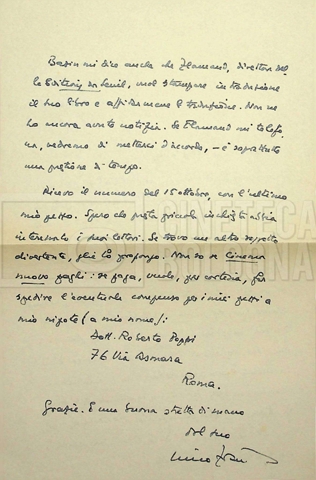 Bazin mi dice anche che Flamand, direttore del-
le Editions du Seuil, vuol stampare in traduzione
il suo libro e affidarmene la traduzione. Non ne
ho ancora avuto notizia. Se Flamand mi telefo-
na, vedremo di metterci d'accordo, – è soprattutto
una questione di tempo.
Ricevo il numero del 15 ottobre, con l'ultimo
mio pezzo. Spero che questa piccola inchiesta abbia
interessato i suoi lettori. Se trovo un altro soggetto
divertente, glie lo propongo. Non so se Cinema
nuovo paghi: se paga, vuole, per cortesia, far
spedire l'eventuale compenso per i miei pezzi a
mio nipote (a mio nome):
Dott. Roberto Poppi
76 Via Asmara
Roma.
Grazie. E una buona stretta di mano
dal suo
Nino Frank
CINETECA